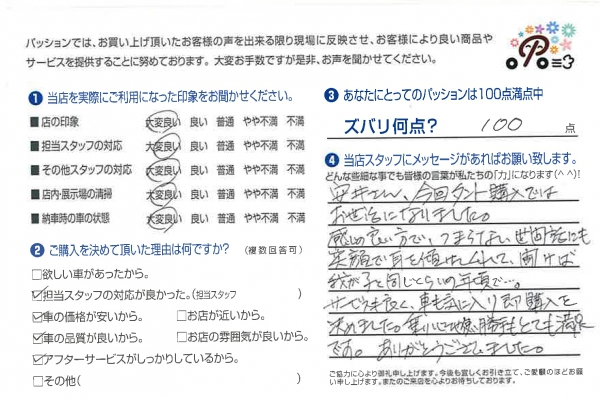 パッションでは、お買い上げ頂いたお客様の声を出来る限り現場に反映させ、お客様により良い商品や
サービスを提供することに努めております。大変お手数ですが是非、お声を聞かせてください。
1 当店を実際にご利用になった印象をお聞かせください。
■店の印象 大変良い 良い 普通 やや不満 不満
■担当スタッフの対応 大変良い 良い 普通 やや不満 不満
■その他スタッフの対応 大変良い 良い 普通 やや不満 不満
■店内・展示場の清掃 大変良い 良い 普通 やや不満 不満
■納車時の車の状態 大変良い 良い 普通 やや不満 不満
2 ご購入を決めて頂いた理由は何ですか? (複数回答可)
□欲しい車があったから。
☑担当スタッフの対応が良かった。(担当スタッフ )
☑車の価格が安いから。 □お店が近いから。
☑車の品質が良いから。 □お店の雰囲気が良いから。
☑アフターサービスがしっかりしているから。
□その他( )
3 あなたにとってのパッションは100点満点中
ズバリ何点? 100 点
4 当店スタッフにメッセージがあればお願い致します。
どんな些細な事でも皆様の言葉が私たちの「力」になります(^^)!
安井さん、今回タント購入では
お世話になりました。
感じの良い方で、つまらない世間話にも
笑顔で耳を傾けてくれて、聞けば
我が子と同じくらいの年頃で…。
サービスも良く、車も気に入り即購入を
決めました。乗り心地、勝手もとても満足
です。ありがとうございました。
ご協力に心より御礼申し上げます。今後も宜しくお引き立て、ご愛顧のほどお願い申し上げます。またのご来店を心よりお待ちしております。